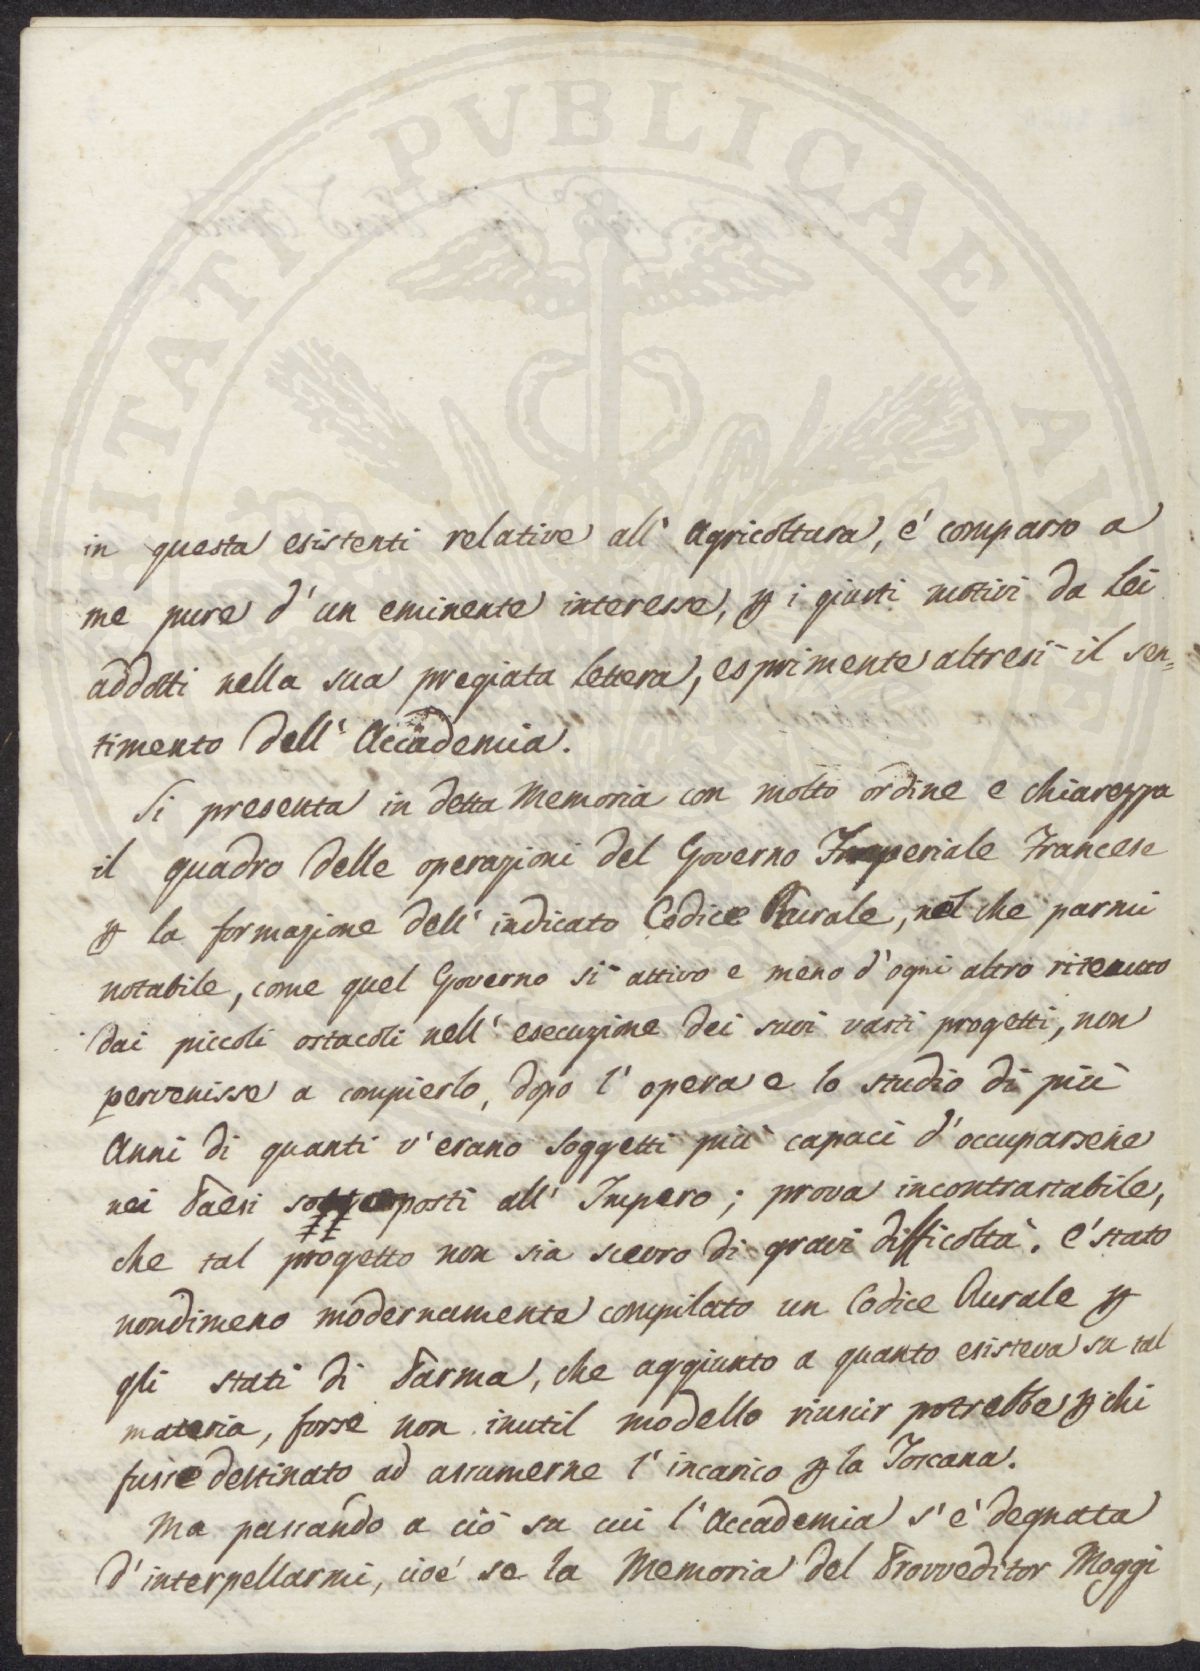 PVBLICAE
in questa esistenti relative all' Agricoltura, é comparso a
me pure d' un eminente interesse, p i giusti motivi da Lei
addotti nella sua pregiata lettera, esprimente altresì il sen=
timento dell' Accademia.
Si presenta in detta Memoria con molto ordine e chiarezza
il quadro delle operazioni del Governo Imperiale Francese
p la formazione dell' indicato Codice Rurale, nel che parmi
notabile, come quel Governo sì attivo e meno d' ogni altro ritenuto
dai piccoli ostacoli nell' esecuzione dei suoi vasti progetti, non
pervenisse a compierlo, dopo l' opera e lo studio di più
Anni di quanti v' erano soggetti più capaci d' occuparsene
nei Paesi sottoposti all' Impero; prova incontrastabile,
che tal progetto non sia scevro di gravi difficoltà. É stato
nondimeno modernamente compilato un Codice Rurale p
gli stati di Parma, che aggiunto a quanto esisteva su tal
materia, forse non inutil modello riuscir potrebbe p chi
fusse destinato ad assumerne l' incarico p la Toscana.
Ma passando a ciò su cui l' Accademia s' è degnata
d' interpellarmi, cioé se la Memoria del Provveditor Moggi